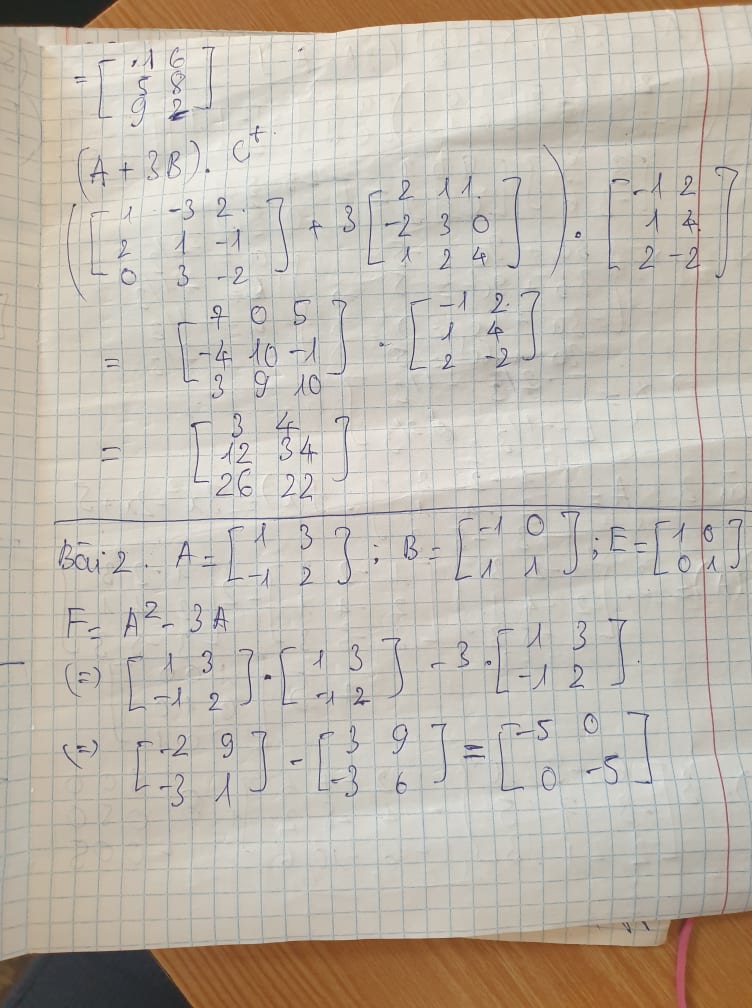 = [ 1 6
5 8
9 2 ]
(A + 3B). C^t
( [ 1 -3 2
2 1 -1
0 3 -2 ] + 3 [ 2 1 1
-2 3 0
1 2 4 ] ) . [ -1 2
1 4
2 -2 ]
= [ 7 0 5
-4 10 -1
3 9 10 ] . [ -1 2
1 4
2 -2 ]
= [ 3 4
12 34
26 22 ]
Bài 2. A = [ 1 3
-1 2 ] ; B = [ -1 0
1 1 ] ; E = [ 1 0
0 1 ]
F = A² - 3A
(=) [ 1 3
-1 2 ] . [ 1 3
-1 2 ] - 3 . [ 1 3
-1 2 ]
(=) [ -2 9
-3 1 ] - [ 3 9
-3 6 ] = [ -5 0
0 -5 ]